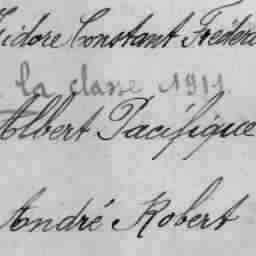 Isidore Constant Fréderic
la classe 1911
Albert Pacifique
André Robert